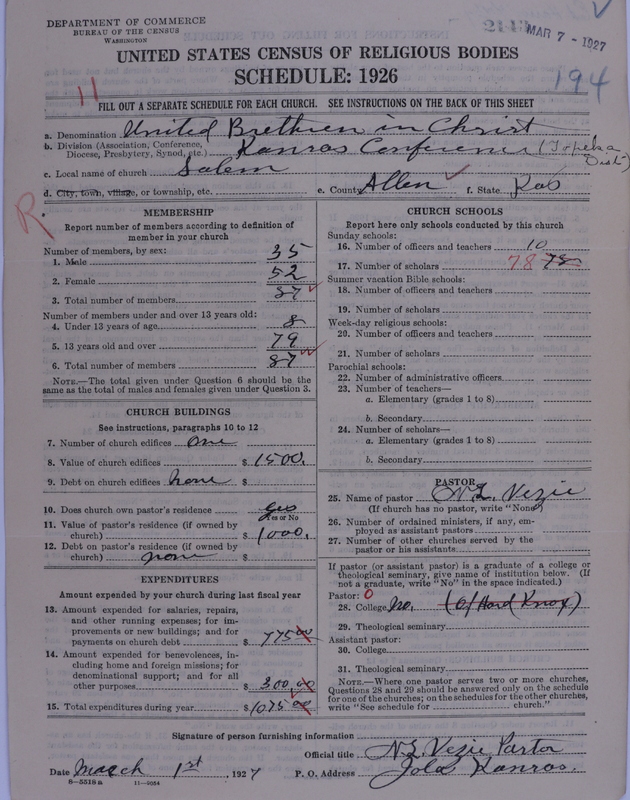 DEPARTMENT OF COMMERCE
BUREAU OF THE CENSUS
WASHINGTON
2143 MAR 7 - 1927
UNITED STATES CENSUS OF RELIGIOUS BODIES
SCHEDULE: 1926
194
11
FILL OUT A SEPARATE SCHEDULE FOR EACH CHURCH. SEE INSTRUCTIONS ON THE BACK OF THIS SHEET
a. Denomination United Brethren in Christ
b. Division (Association, Conference, Diocese, Presbytery, Synod, etc.) Kansas Conference (Topeka Dist)
c. Local name of church Salem
d. City, town, village, or township, etc. e. County Allen f. State Kas
R
MEMBERSHIP
Report number of members according to definition of
member in your church
Number of members, by sex:
1. Male 35
2. Female 52
3. Total number of members 87
Number of members under and over 13 years old:
4. Under 13 years of age 8
5. 13 years old and over 79
6. Total number of members 87
NOTE.—The total given under Question 6 should be the
same as the total of males and females given under Question 3.
CHURCH BUILDINGS
See instructions, paragraphs 10 to 12
7. Number of church edifices one
8. Value of church edifices $ 1500.
9. Debt on church edifices none $
10. Does church own pastor's residence yes
Yes or No
11. Value of pastor's residence (if owned by
church) $ 1000.
12. Debt on pastor's residence (if owned by
church) none $
EXPENDITURES
Amount expended by your church during last fiscal year
13. Amount expended for salaries, repairs,
and other running expenses; for im-
provements or new buildings; and for
payments on church debt $ 775 00
14. Amount expended for benevolences, in-
cluding home and foreign missions; for
denominational support; and for all
other purposes $ 300.00
15. Total expenditures during year $ 1075 00
CHURCH SCHOOLS
Report here only schools conducted by this church
Sunday schools:
16. Number of officers and teachers 10
17. Number of scholars 78 78
Summer vacation Bible schools:
18. Number of officers and teachers
19. Number of scholars
Week-day religious schools:
20. Number of officers and teachers
21. Number of scholars
Parochial schools:
22. Number of administrative officers
23. Number of teachers—
a. Elementary (grades 1 to 8)
b. Secondary
24. Number of scholars—
a. Elementary (grades 1 to 8)
b. Secondary
PASTOR
25. Name of pastor N. L. Vezie
(If church has no pastor, write "None")
26. Number of ordained ministers, if any, em-
ployed as assistant pastors
27. Number of other churches served by the
pastor or his assistants
If pastor (or assistant pastor) is a graduate of a college or
theological seminary, give name of institution below. (If
not a graduate, write "No" in the space indicated.)
Pastor: 0
28. College No. (Of Hard Knox)
29. Theological seminary
Assistant pastor:
30. College
31. Theological seminary
NOTE.—Where one pastor serves two or more churches,
Questions 28 and 29 should be answered only on the schedule
for one of the churches; on the schedules for the other churches,
write "See schedule for church."
Signature of person furnishing information
Official title N. L. Vezie Pastor
Date March 1st, 1927 P. O. Address Iola Kansas.
8—5518 a 11—9054